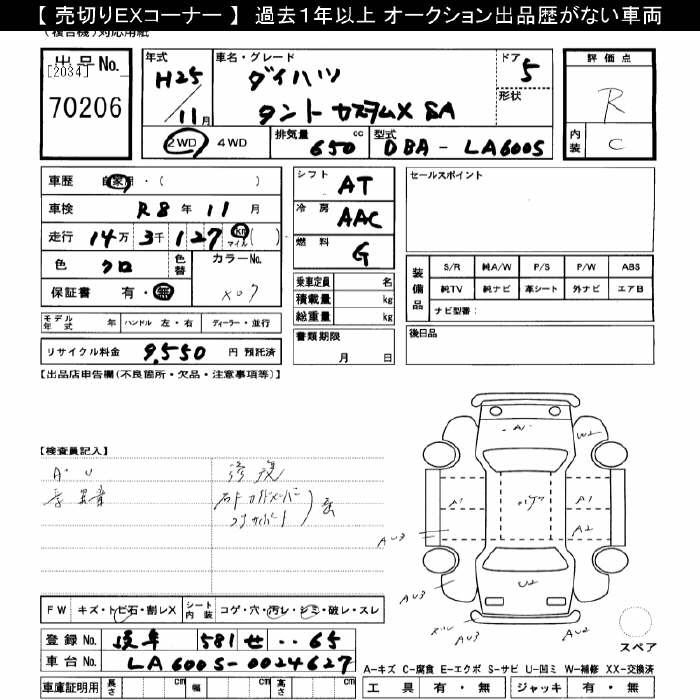 【 売切りEXコーナー 】 過去1年以上 オークション出品歴がない車両
(複合機)対応用紙
出品No.
[2034]
70206
年式
H25/11月
車名・グレード
ダイハツ
タント カスタムX SA
ドア
5
形状
2WD・4WD
排気量
650 cc
型式
DBA - LA600S
評価点
R
内装
C
車歴 自家用・( )
車検 R8年11月
走行 14万3千127 km マイル( )
色 クロ
色替
カラーNo.
X07
保証書 有・無
シフト AT
冷房 AAC
燃料 G
乗車定員 名
積載量 kg
総重量 kg
モデル年式 年
ハンドル 左・右
ディーラー・並行
リサイクル料金 9,550 円 預託済
書類期限
月 日
セールスポイント
装備品
S/R 純A/W P/S P/W ABS
純TV 純ナビ 革シート 外ナビ エアB
ナビ型番:
後日品
【出品店申告欄(不良箇所・欠品・注意事項等)】
【検査員記入】
A・U
修復
FW キズ・トビ石・割レX
シート内装 コゲ・穴・汚レ・シミ・破レ・スレ
登録No. 岐阜 581 せ ・・65
車台No. LA600S-0024627
車庫証明用 長さ cm 幅 cm 高さ cm
A1
W2
A1
A1
A2
AU3
U2
AU3
AU3
AU2
スペア
A−キズ C−腐食 E−エクボ S−サビ U−凹ミ W−補修 XX−交換済
工具 有・無
ジャッキ 有・無